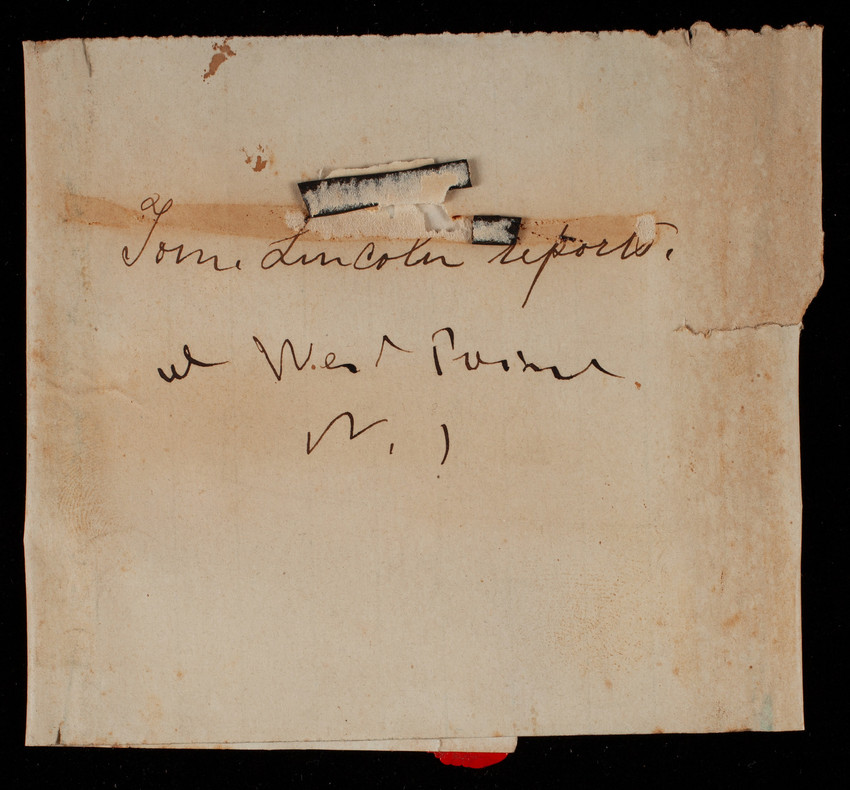 Tom. Lincoln reports.
at West Point
N. Y